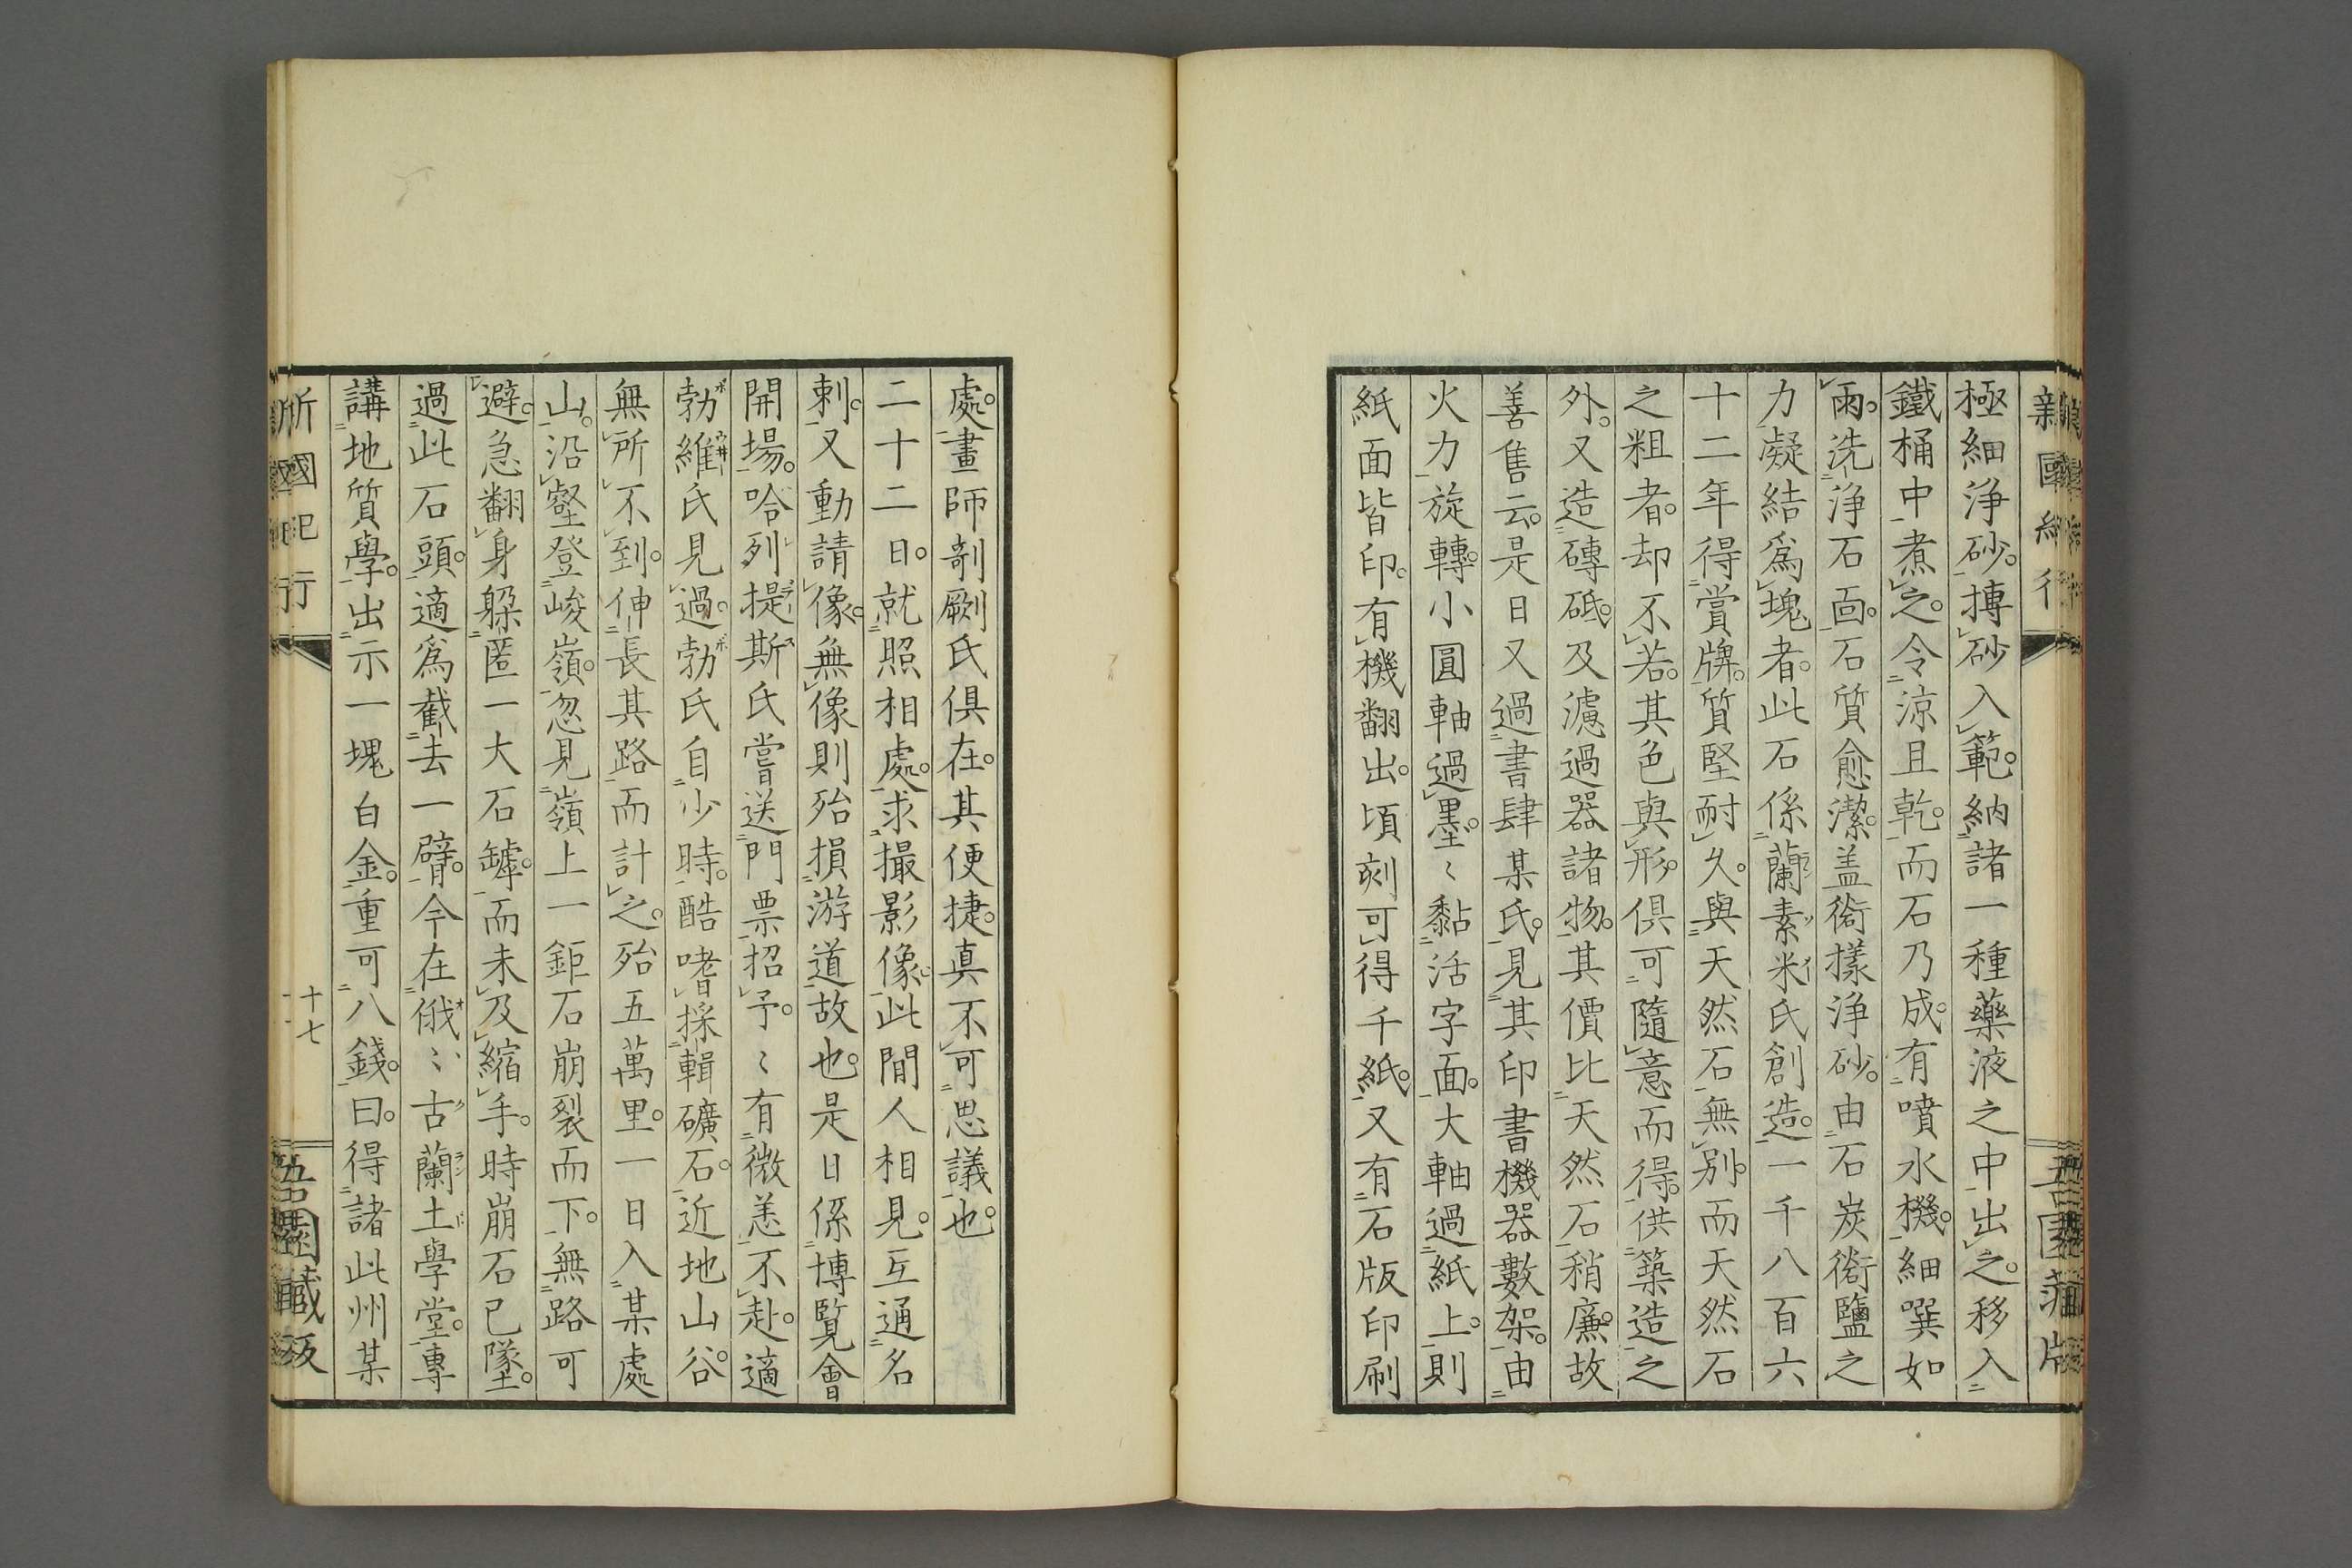 極細浄砂。搏砂入範。納諸一種藥液之中出之。移入
鐵桶中煮之。令涼且乾。而石乃成。有噴水機。細噀如
雨。洗浄石面。石質愈潔。盖衒樣浄砂。由石炭衒鹽之
力凝結爲塊者。此石係蘭素米氏創造。一千八百六
十二年得賞牌。質堅耐久。與天然石無別。而天然石
之粗者。却不若。其色與形。俱可隨意而得。供築造之
外。又造磚砥。及濾過器諸物。其價比天然石稍廉。故
善售云。是日又過書肆某氏。見其印書機器數架。由
火力旋轉。小圓軸過墨。〻黏活字面。大軸過紙上。則
紙面皆印。有機翻出。頃刻可得千紙。又有石版印刷
處。畫師剞劂氏俱在。其便捷。真不可思議也。
二十二日。就照相處。求撮影像。此間人相見。互通名
刺。又動請像。無像則殆損游道故也。是日係博覧會
開場。哈列提斯氏嘗送門票招予。〻有微恙不赴。適
勃維氏見過。勃氏自少時。酷嗜採輯礦石。近地山谷
無所不到。伸長其路而計之。殆五萬里。一日入某處
山。沿壑登峻嶺。忽見嶺上一鉅石崩裂而下。無路可
避。急翻身躱匿一大石罅。而未及縮手。時崩石已墜。
過此石頭。適爲截去一臂。今在俄〻古蘭土學堂。專
講地質學。出示一塊白金。重可八錢。曰。得諸此州某
十七